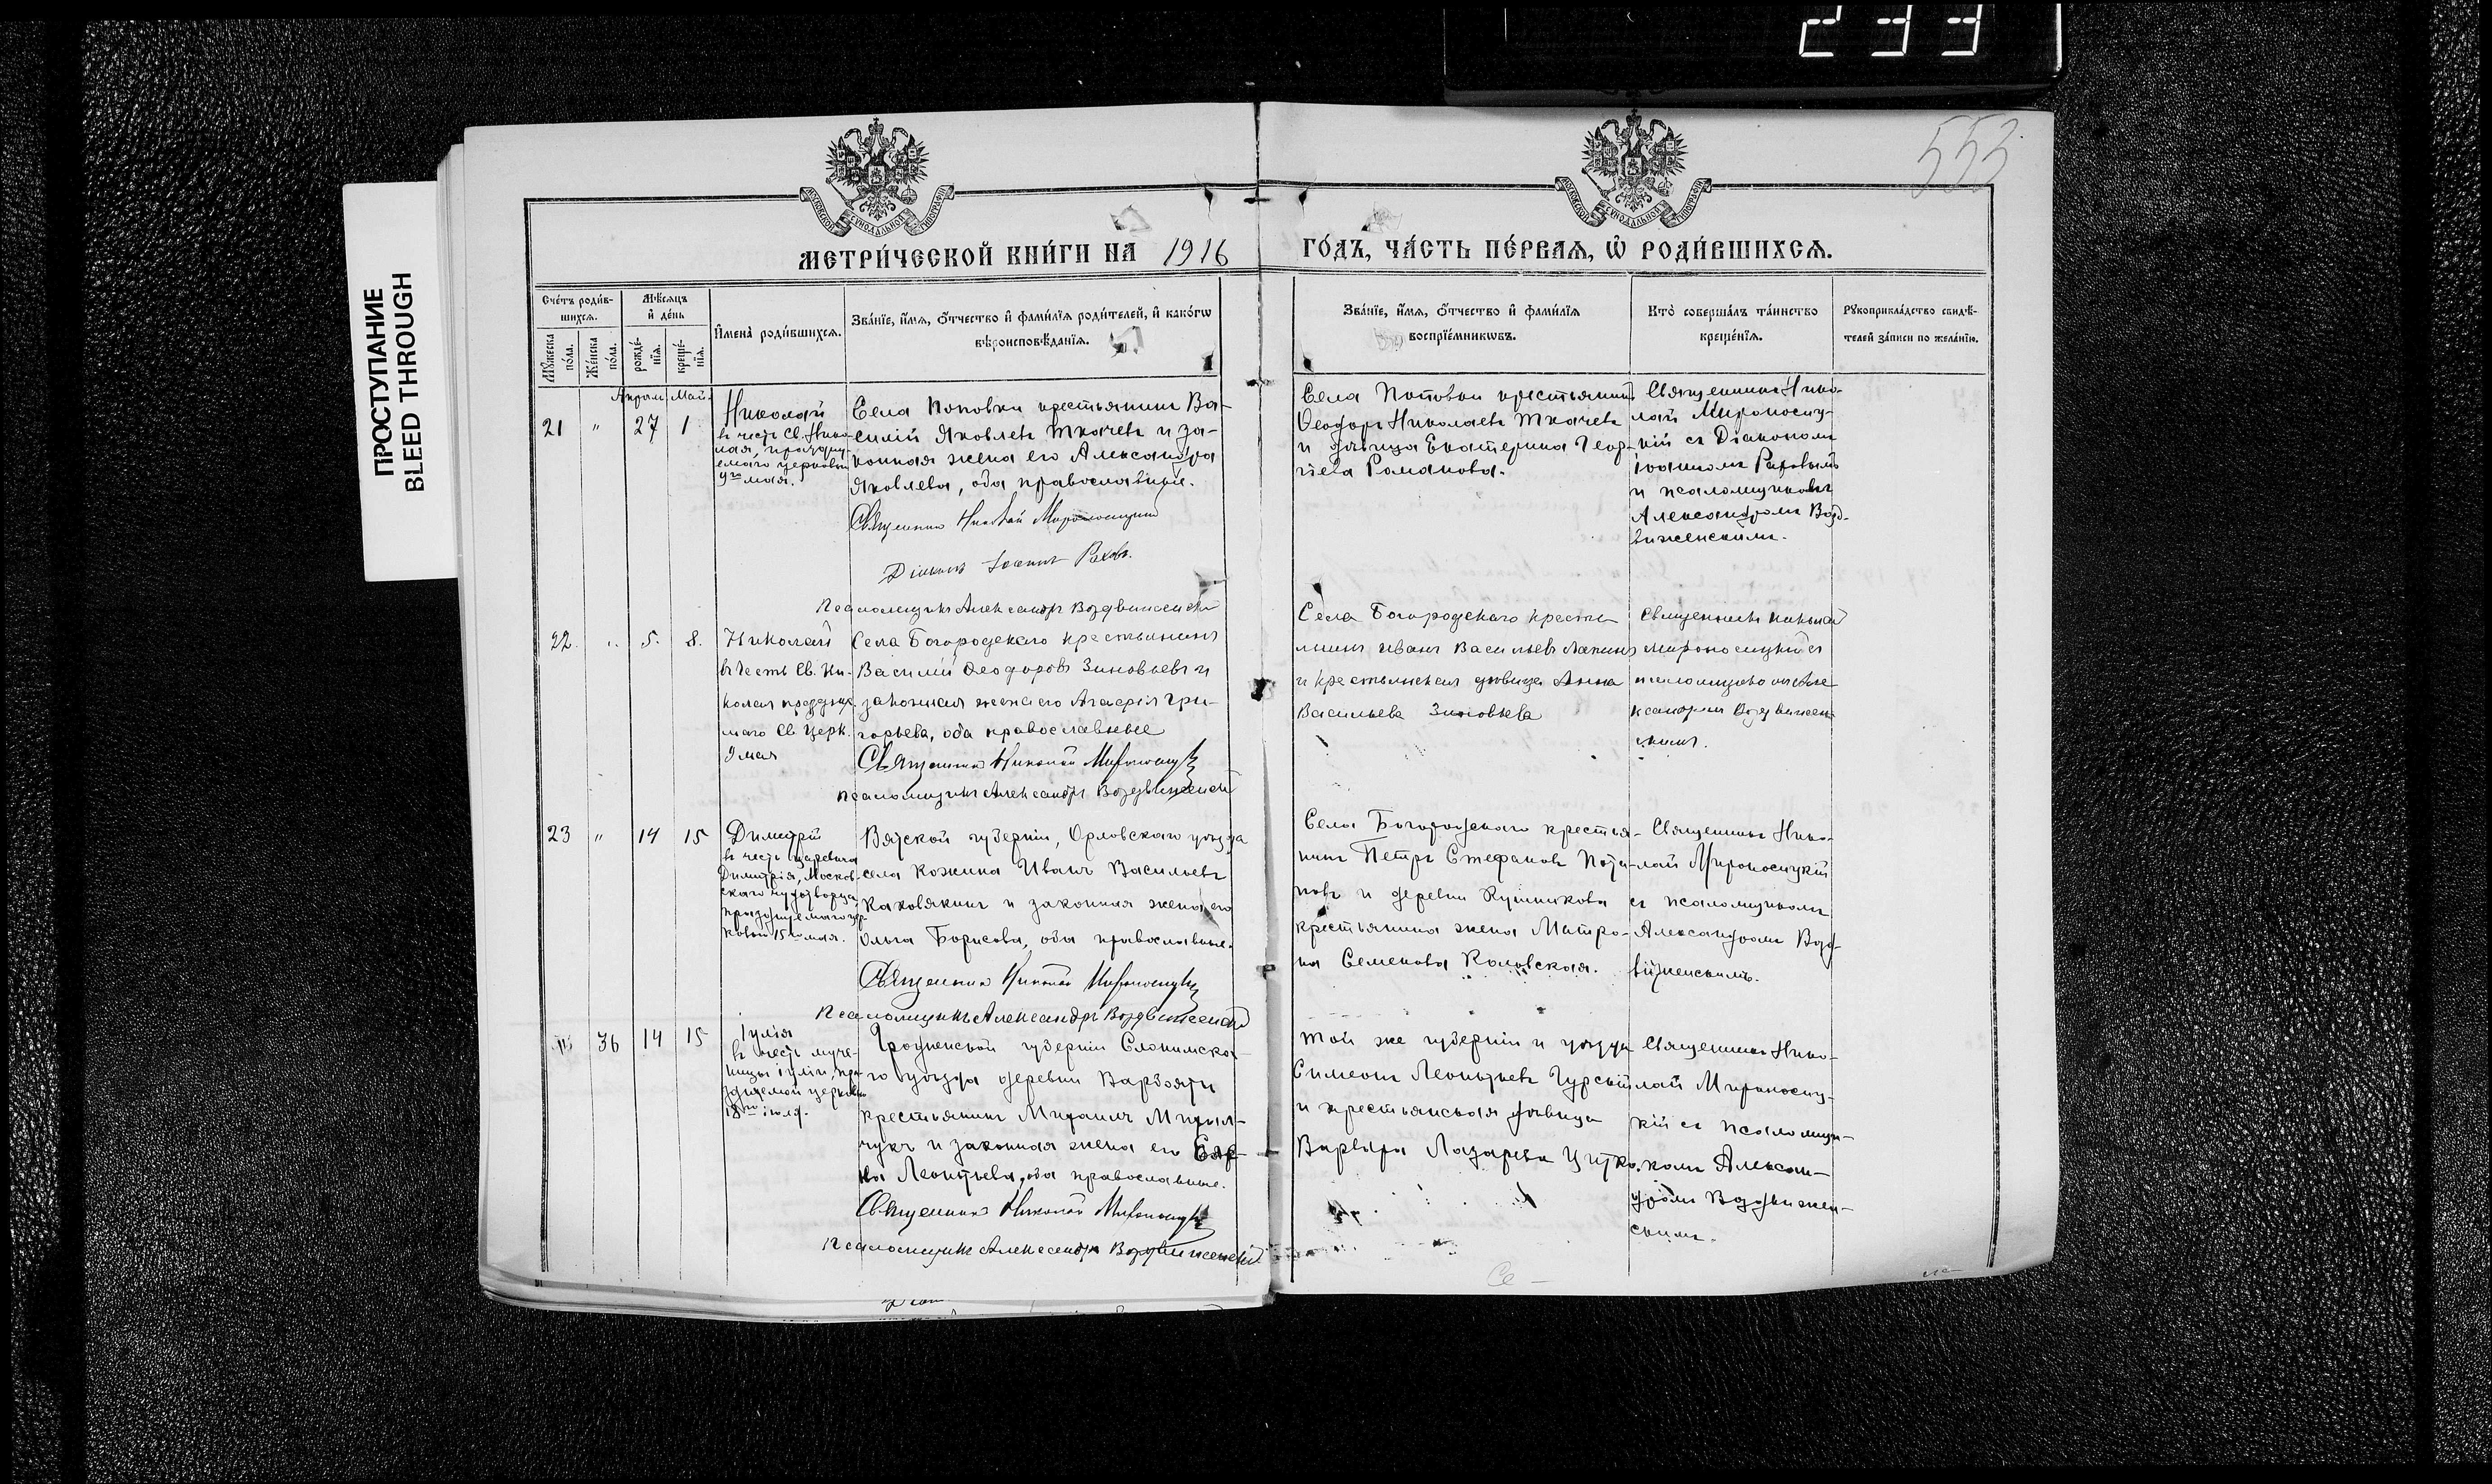 233
ПРОСТУПАНИЕ
BLEED THROUGH
553
МОСКОВСКОЙ СѴНОДАЛЬНОЙ ТИПОГРАФІИ
МОСКОВСКОЙ СѴНОДАЛЬНОЙ ТИПОГРАФІИ
МЕТРИ́ЧЕСКОЙ КНИ́ГИ НА 1916 ГО́ДЪ, ЧА́СТЬ ПЕ́РВАѦ, Ѡ РОДИ́ВШИХСѦ.
Сче́тъ роди́в-
шихсѧ.
Мꙋ́жеска
по́ла.
Же́нска
по́ла.
Мѣ́сѧцъ
и де́нь
рожде́-
нїѧ.
креще́-
нїѧ.
Имена̀ роди́вшихсѧ.
Зва́нїе, и́мѧ, о́тчество и фами́лїѧ роди́телей, и како́гѡ
вѣроисповѣ́данїѧ.
Зва́нїе, и́мѧ, о́тчество и фами́лїѧ
воспрїе́мникѡвъ.
Кто̀ соверша́лъ та́инство
креще́нїѧ.
Рꙋкоприкла́дство свидѣ́-
телей за́писи по жела́нїю.
Апрѣль Май.
21 " 27 1
Николай
въ честь Св. Нико-
лая, праздну-
емаго церковью
9го мая.
Села Поповки крестьянинъ Ва-
силій Яковлевъ Ткачевъ и за-
конная жена его Александра
Яковлева, оба православные.
Священникъ Николай Мироносицкій
Діаконъ Іоаннъ Раховъ.
Псаломщикъ Александръ Воздвиженскій
Села Поповки крестьянинъ
Ѳеодоръ Николаевъ Ткачевъ
и дѣвица Екатерина Геор-
гіева Романова.
Священникъ Нико-
лай Мироносиц-
кій съ Діакономъ
Іоанномъ Раховымъ
и псаломщикомъ
Александромъ Возд-
виженскимъ.
22. " 5. 8.
Николай
въ честь Св. Ни-
колая празднуе-
маго Св. Церк.
9 мая
Села Богородскаго крестьянинъ
Василій Ѳеодоровъ Зиновьевъ и
законная жена его Агафія Гри-
горьева, оба православные
Священникъ Николай Мироносицкій
Псаломщикъ Александръ Воздвиженскій
Села Богородскаго крестья-
нинъ Иванъ Васильевъ Лапинъ
и крестьянская дѣвица Анна
Васильева Зиновьева
Священникъ Николай
Мироносицкій съ
псаломщикомъ Але-
ксандромъ Воздвижен-
скимъ.
23 " 14 15
Димитрій
въ честь царевича
Димитрія, Москов-
скаго чудотворца,
празднуемаго цер-
ковью 15го мая.
Вятской губерніи, Орловскаго уѣзда
села Кожина Иванъ Васильевъ
Каховякинъ и законная жена его
Ольга Борисова, оба православные.
Священникъ Николай Мироносицкій
Псаломщикъ Александръ Воздвиженскій
Села Богородскаго крестья-
нинъ Петръ Стефановъ Поти-
повъ и деревни Кушникова
крестьянина жена Матро-
на Семенова Каловская.
Священникъ Нико-
лай Мироносицкій
съ псаломщикомъ
Александромъ Возд-
виженскимъ.
36 14 15
Іулія
въ честь муче-
ницы Іуліи, пра-
зднуемой церковью
18го іюля.
Гродненской губерніи Слонимска-
го уѣзда деревни
крестьянинъ Михаилъ Михал-
чукъ и законная жена его
Леонтьева, оба православные.
Священникъ Николай Мироносицкій
Псаломщикъ Александръ Воздвиженскій
Той же губерніи и уѣзда
Симеонъ Леонтьевъ Гурскій
и крестьянская дѣвица
Варвара Лазарева Цитко.
Священникъ Нико-
лай Мироносиц-
кій съ псаломщи-
комъ Алексан-
дромъ Воздвижен-
скимъ.
Се-